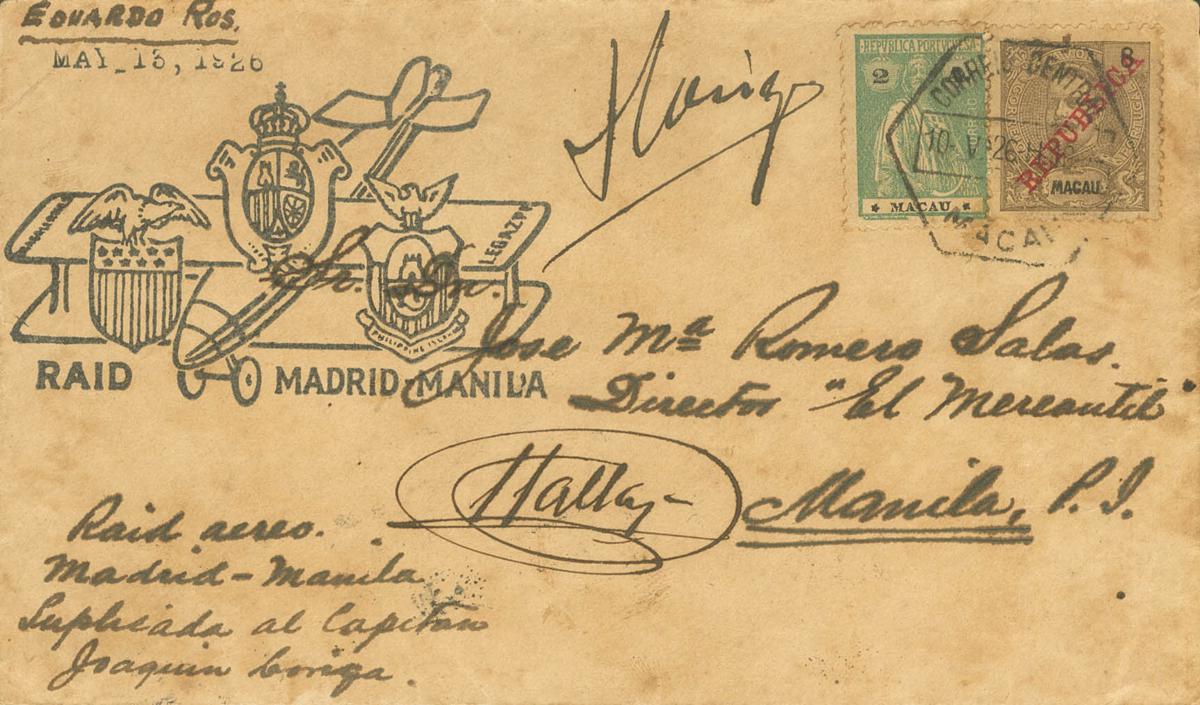 EDUARDO ROS.
MAY 13, 1926
Loriga
REPVBLICA PORTUGUESA
2
CORREIO
MACAU
8
REPUBLICA
MACAU
CORREIO CENTRAL
10. V 926
MACAU
LEGAZPI
PHILIPPINE ISLANDS
RAID MADRID-MANILA
Sr. Dn.
Jose Mª Romero Salas.
Director "El Mercantil"
Manila, P. I.
Raid aereo.
Madrid-Manila
Suplicada al Capitan
Joaquin Loriga.